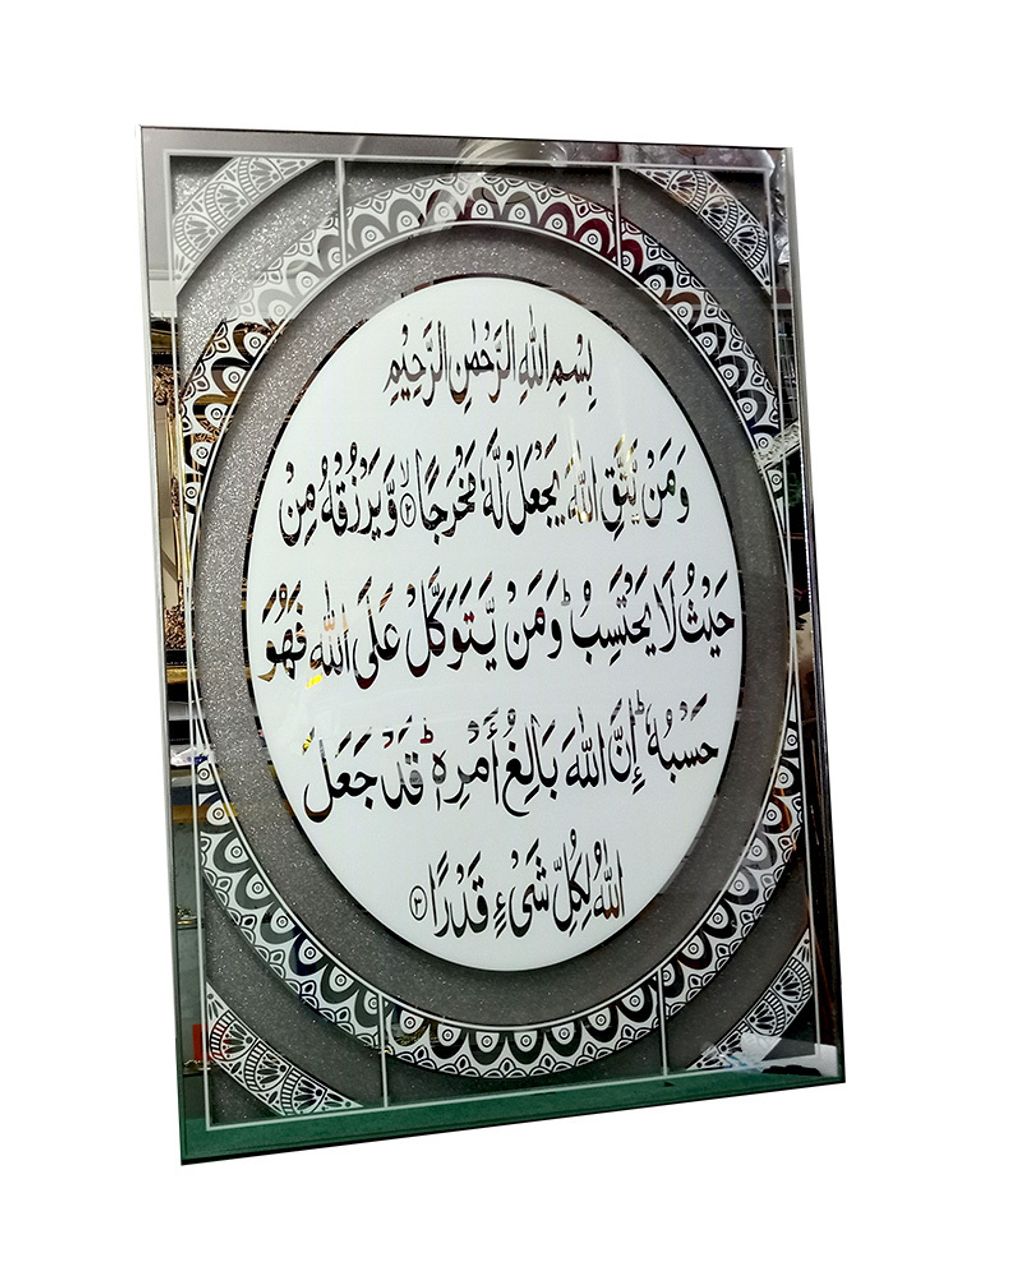 بِسْمِ اللهِ الرَّحْمٰنِ الرَّحِيْمِ
وَمَنْ يَّتَّقِ اللهَ يَجْعَلْ لَّهٗ مَخْرَجًا ۙ﴿۲﴾ وَّيَرْزُقْهُ مِنْ
حَيْثُ لَا يَحْتَسِبُ ؕ وَمَنْ يَّتَوَكَّلْ عَلَى اللهِ فَهُوَ
حَسْبُهٗ ؕ اِنَّ اللهَ بَالِغُ أَمْرِهٖ ؕ قَدْ جَعَلَ
اللهُ لِكُلِّ شَىْءٍ قَدْرًا ﴿۳﴾